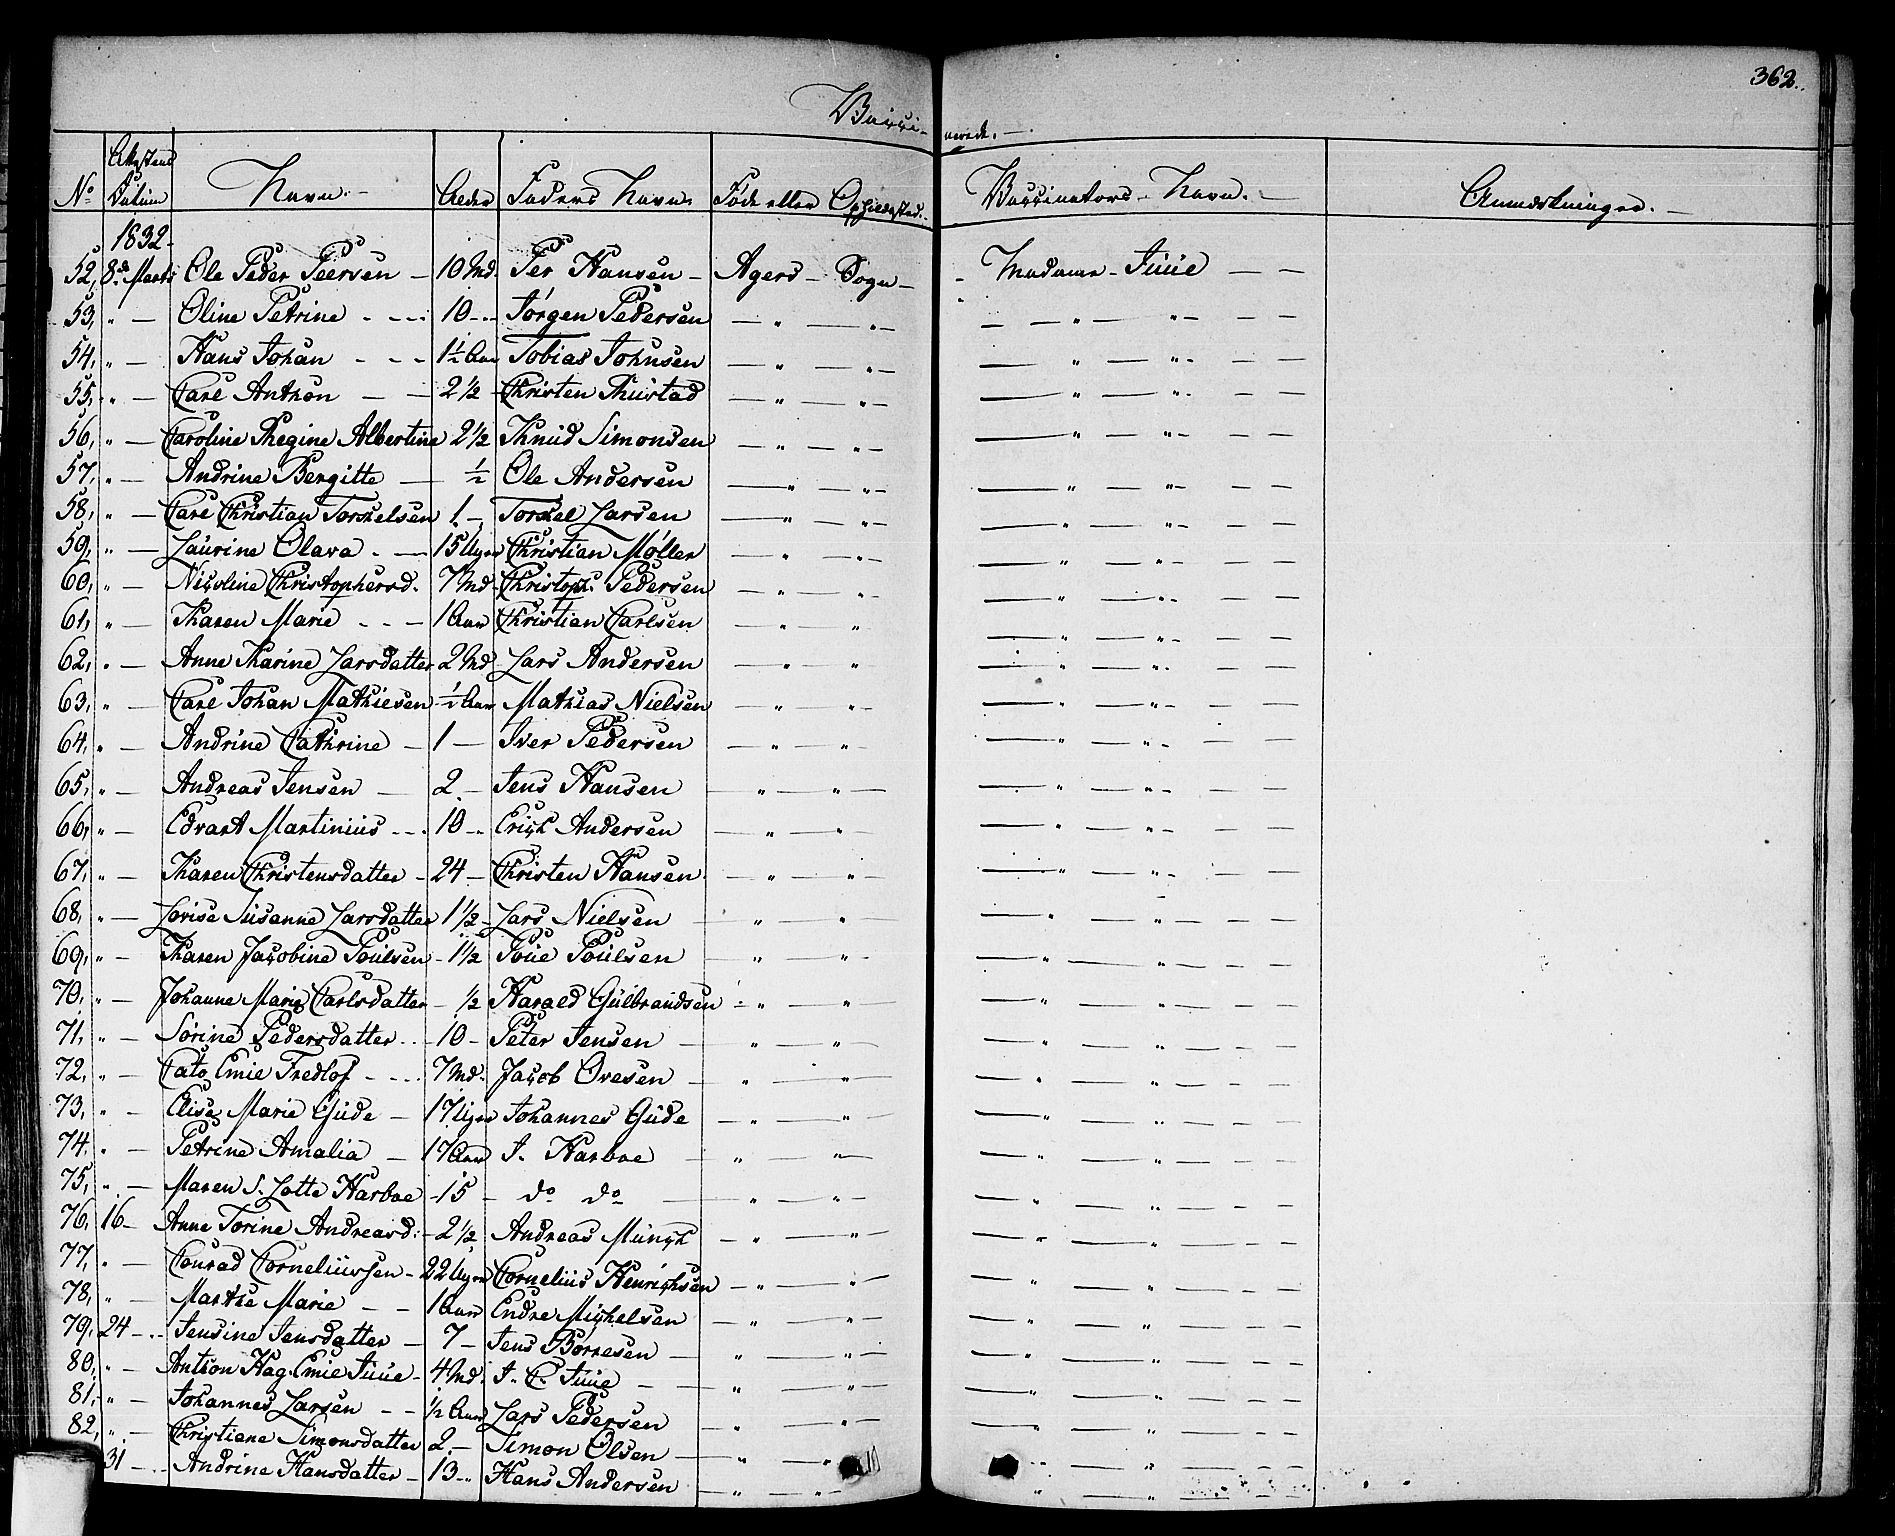 362.
Vacci- nerede.
No | Attestens Datum | Navn. | Alder | Faders Navn. | Føde eller Opholdssted. | Vaccinators Navn. | Anmærkninger.
1832
52, 8de Marts Ole Peder Peersen - 10 Md. Per Hansen - Agers Sogn - Madame Juul - -
53, " - Oline Petrine - - - 10 - Jørgen Pedersen - " - " - - " - " - - -
54, " - Hans Johan - - - 1 1/2 Aar Tobias Johnsen - " - " - - " - " - - -
55, " - Carl Anthon - - 2 1/2 Christen Rustad - " - " - - " - " - - -
56, " - Caroline Regine Albertine 2 1/2 Knud Simonsen - " - " - - " - " - - -
57, " - Andrine Bergitte - 1/2 Ole Andersen - " - " - - " - " - - -
58, " - Carl Christian Torkelsen 1 - Torkel Larsen - " - " - - " - " - - -
59, " - Laurine Olava - - 15 Uger Christian Møller - " - " - - " - " - - -
60, " - Nicoline Christophersd. 7 Md. Christoph. Pedersen - " - " - - " - " - - -
61, " - Karen Marie - - - 1 Aar Christian Carlsen - " " - " - " - - -
62, " - Anne Karine Larsdatter 2 Md Lars Andersen - " " - " - " - - -
63, " - Carl Johan Mathiesen 1/2 Aar Mathias Nielsen - " - " - - " - " - - -
64, " - Andrine Cathrine - 1 - Iver Pedersen - " - " - - " - " - - -
65, " - Andreas Jensen - 2 - Jens Hansen - " - " - - " - " - - -
66, " - Edvart Martinius - - 10 - Erich Andersen - " - " - - " - " - - -
67, " - Karen Christensdatter - 24 - Christen Hansen - " - " - - " - " - - -
68, " - Lovise Susanne Larsdatter 1 1/2 - Lars Nielsen - " - " - " - " - - -
69, " - Karen Jacobine Poulsen - 1 1/2 Poul Poulsen - " - " - - " - " - - -
70, " - Johanne Marie Carlsdatter - 1/2 Harald Gulbrandsen - " - " - - " - " - - -
71, " - Sørine Pedersdatter - 10 - Peter Jensen - " - " - - " - " - - -
72, " - Cato Emil Fredlof - - 7 Md. Jacob Ovesen - " - " - - " - " - - -
73, " - Elise Marie Gude - 17 Uger Johannes Gude - " - " - - " - " - - -
74, " - Petrine Amalia - 17 Aar J. Harboe - " - " - - " - " - - -
75, " - Maren S. Lotte Harboe - 15 - do do - " - " - - " - " - - -
76, 16 - Anne Torine Andreasd. - 2 1/2 Andreas Munch - " - " - - " - " - - -
77, " - Conrad Corneliussen - 22 Uger Cornelius Henrichsen - " - " - - " - " - - -
78, " - Marthe Marie - - 1 Aar Endre Michelsen - " - " - - " - " - - -
79, 24 - Jensine Jensdatter - 7 - Jens Børresen - " - " - - " - " - - -
80, " - Anthon Hag. Emil Juul - 4 Md. J. C. Juul - - " - " - - " - " - - -
81, " - Johannes Larsen - - 1/2 Aar Lars Pedersen " - " - - " - " - - -
82, " - Christiane Simonsdatter 2 - Simon Olsen - " - " - - " - " - - -
31 - Andrine Hansdatter - 13 - Hans Andersen - " - " - " - " - - -